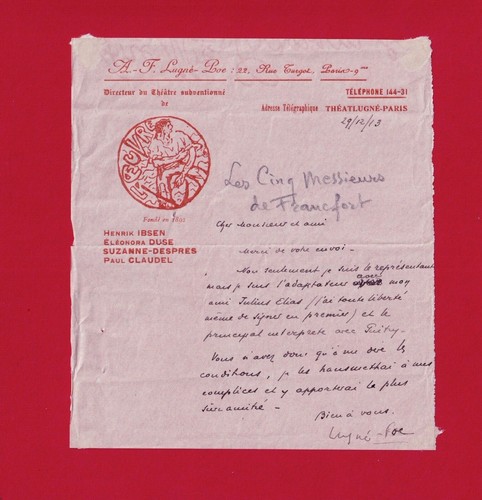 A.-F. Lugné-Poe : 22, Rue Turgot, Paris-9me
Directeur du Théâtre subventionné
de
TÉLÉPHONE 144-31
Adresse Télégraphique THÉATLUGNÉ-PARIS
29/12/13
L'ŒUVRE
Fondé en 1893
HENRIK IBSEN
ÉLÉONORA DUSE
SUZANNE-DESPRÈS
PAUL CLAUDEL
Les Cinq Messieurs
de Francfort
Cher Monsieur et ami
Merci de votre envoi -
Non seulement je suis le représentant
mais je suis l'adaptateur avec mon
ami Julius Elias (j'ai toute liberté
même de signer en premier) et le
principal interprète avec Guitry.
Vous n'avez donc qu'à me dire les
conditions, je les transmettrai à mes
complices et y apporterai le plus
sincamitié -
Bien à vous.
Lugné-Poe